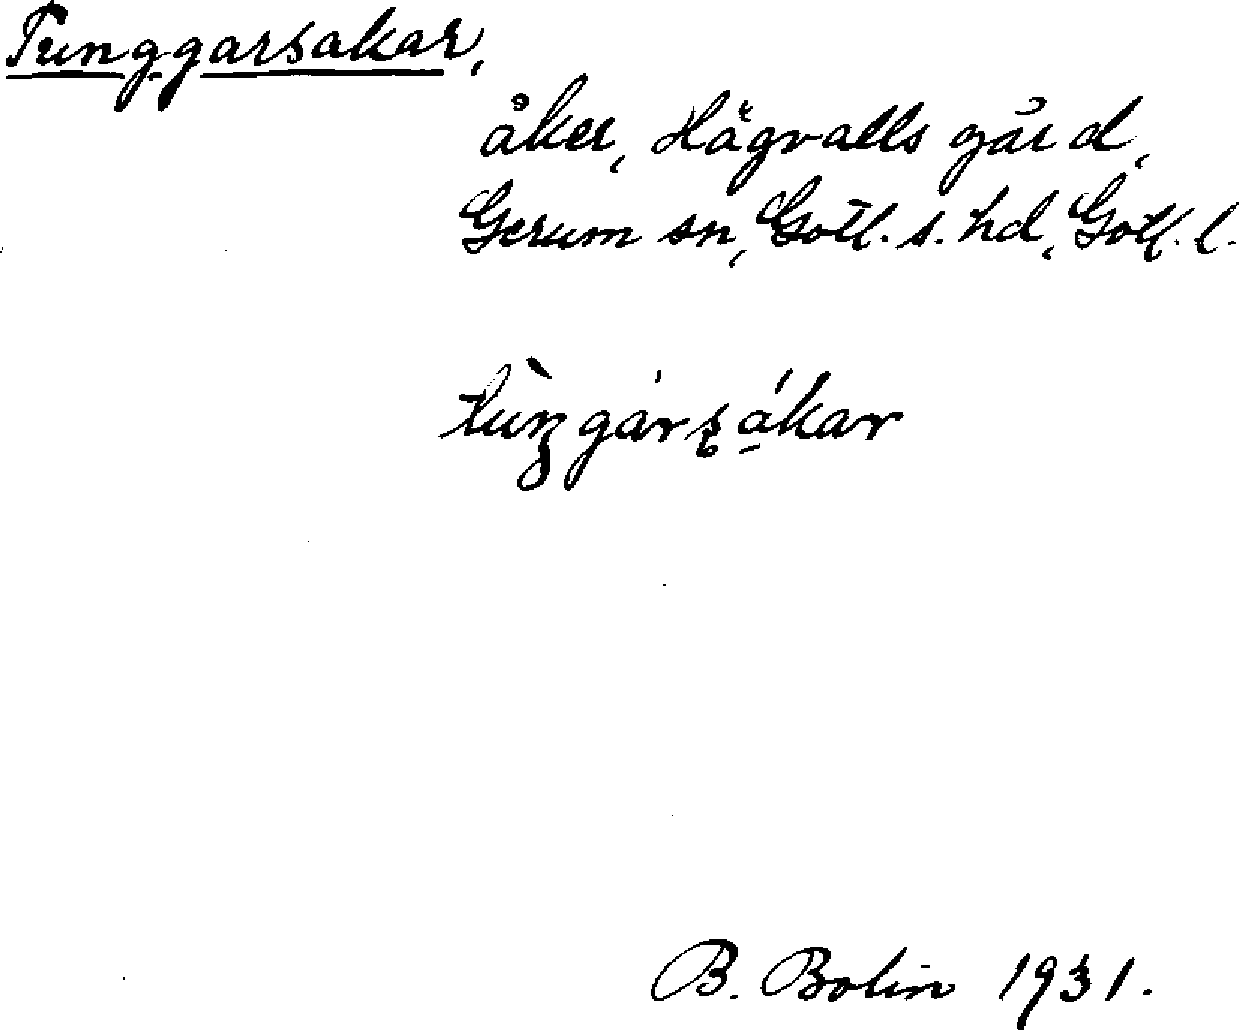 Tunggarsakar,
åker, Hägvalls gård,
Gerum sn, Gotl. s. hd, Gotl. l.
tùŋgársákar
B. Bolin 1931.